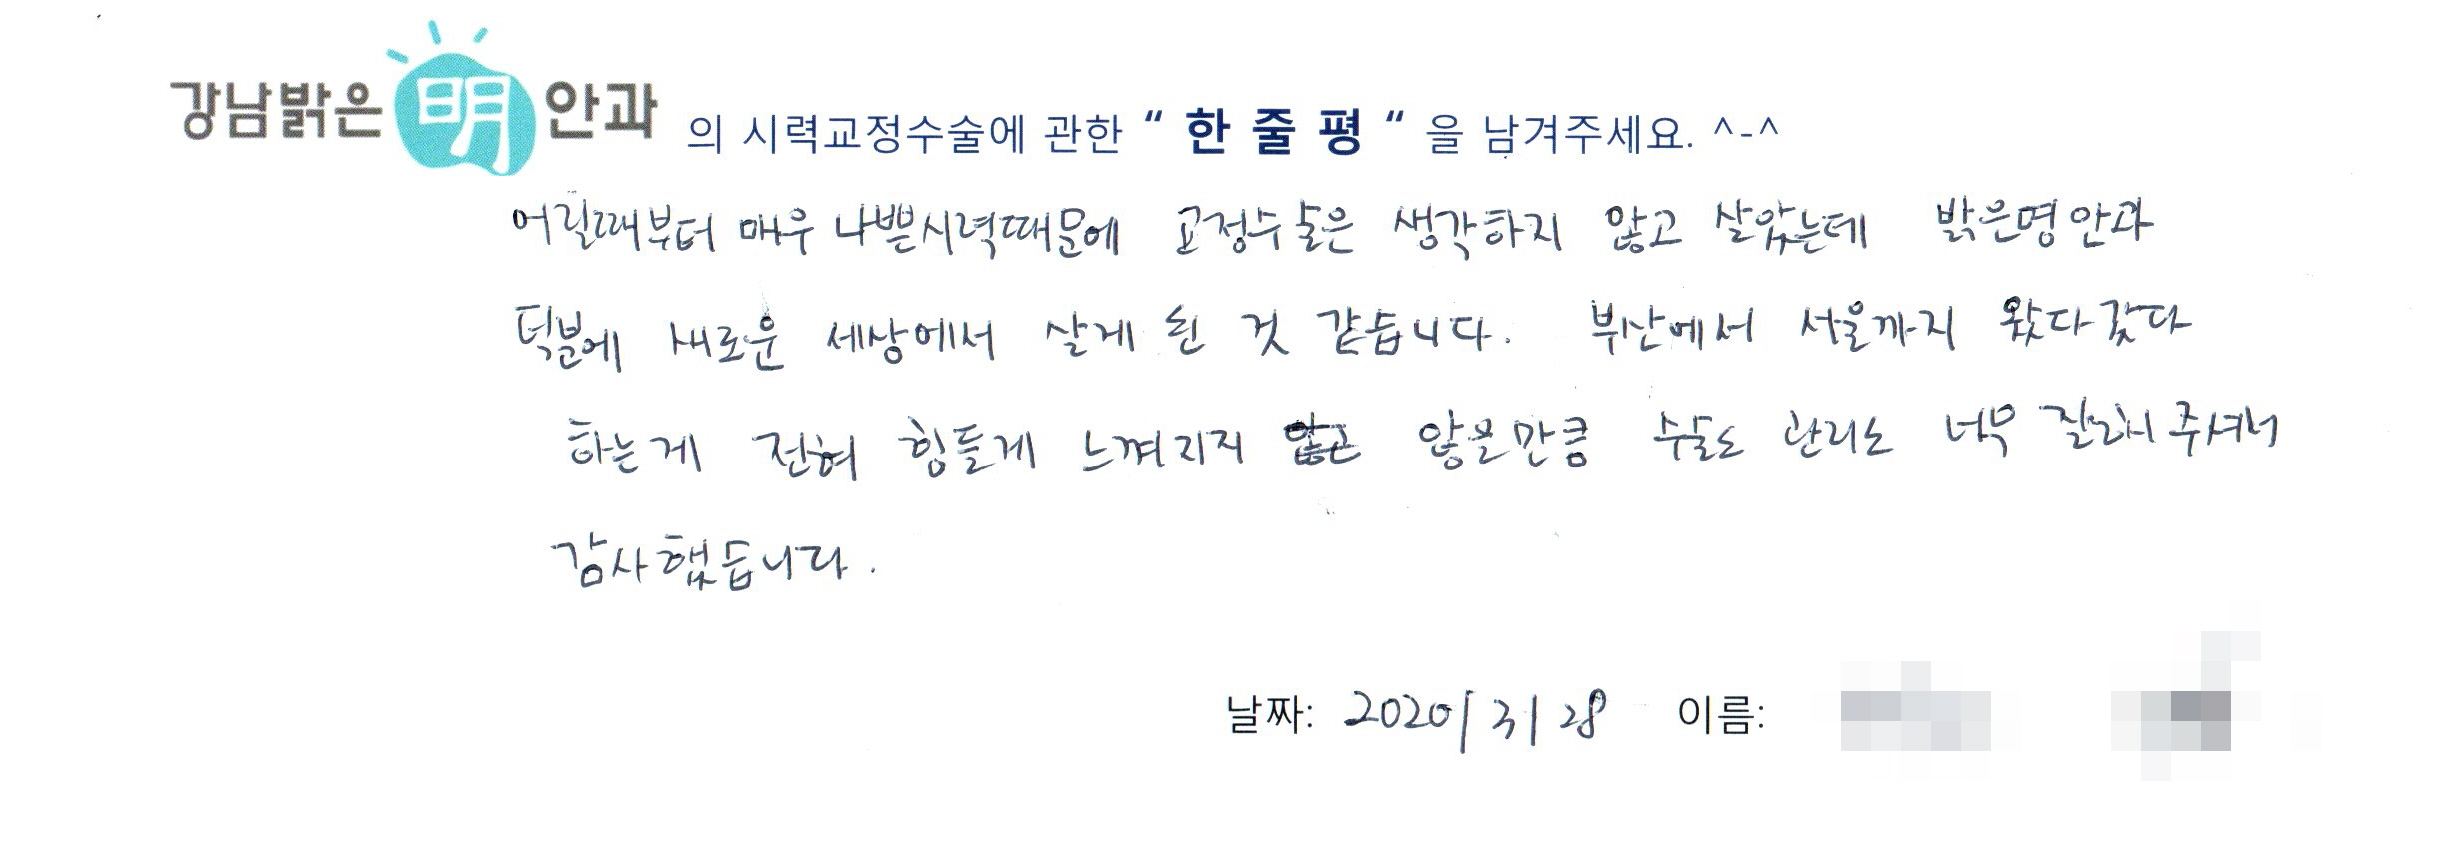 강남밝은明안과 의 시력교정수술에 관한 “ 한 줄 평 “ 을 남겨주세요. ^-^
어릴때부터 매우 나쁜시력때문에 교정수술은 생각하지 않고 살았는데 밝은명안과
덕분에 새로운 세상에서 살게 된 것 같습니다. 부산에서 서울까지 왔다갔다
하는게 전혀 힘들게 느껴지지 않을만큼 수술도 관리도 너무 잘해 주셔서
감사했습니다.
날짜: 2020/3/28 이름: